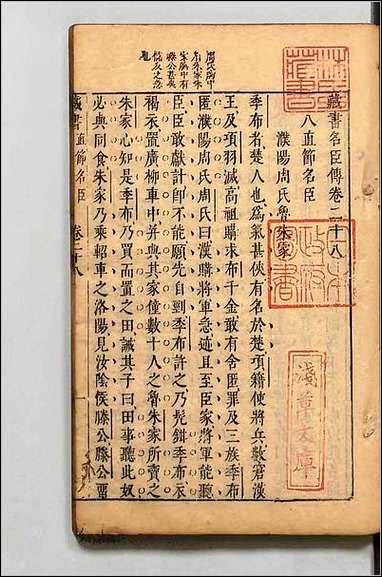 周氏胸中
有朱家朱
家胸中有
滕公甚矣
友之急
藏書名臣傳卷二十八
八直節名臣
濮陽周氏 魯朱家
季布者楚人也為氣甚俠有名於楚項籍使將兵數窘漢
王及項羽滅高祖購求布千金敢有舍匿罪及三族季布
匿濮陽周氏周氏曰漢購將軍急迹且至臣家將軍能聽
臣臣敢獻計即不能願先自剄季布許之乃髡鉗季布衣
褐衣置廣柳車中并與其家僮數十人之魯朱家所賣之
朱家心知是季布乃買而置之田誡其子曰田事聽此奴
必與同食朱家乃乘軺車之洛陽見汝陰侯滕公滕公留
藏書 直節名臣 卷二十八
日本
政府
圖書
淺草文庫